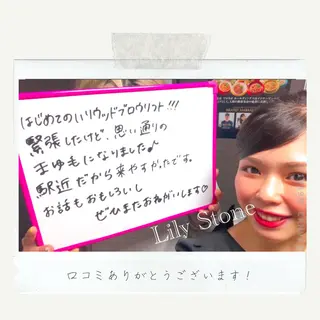 はじめてのハリウッドブロウリフト!!!
緊張したけど、思い通りの
まゆもになりました♪
駅近だから来やすかったです。
お話もおもしろいし
ぜひまたおねがいします♡
Lily Stone
口コミありがとうございます!